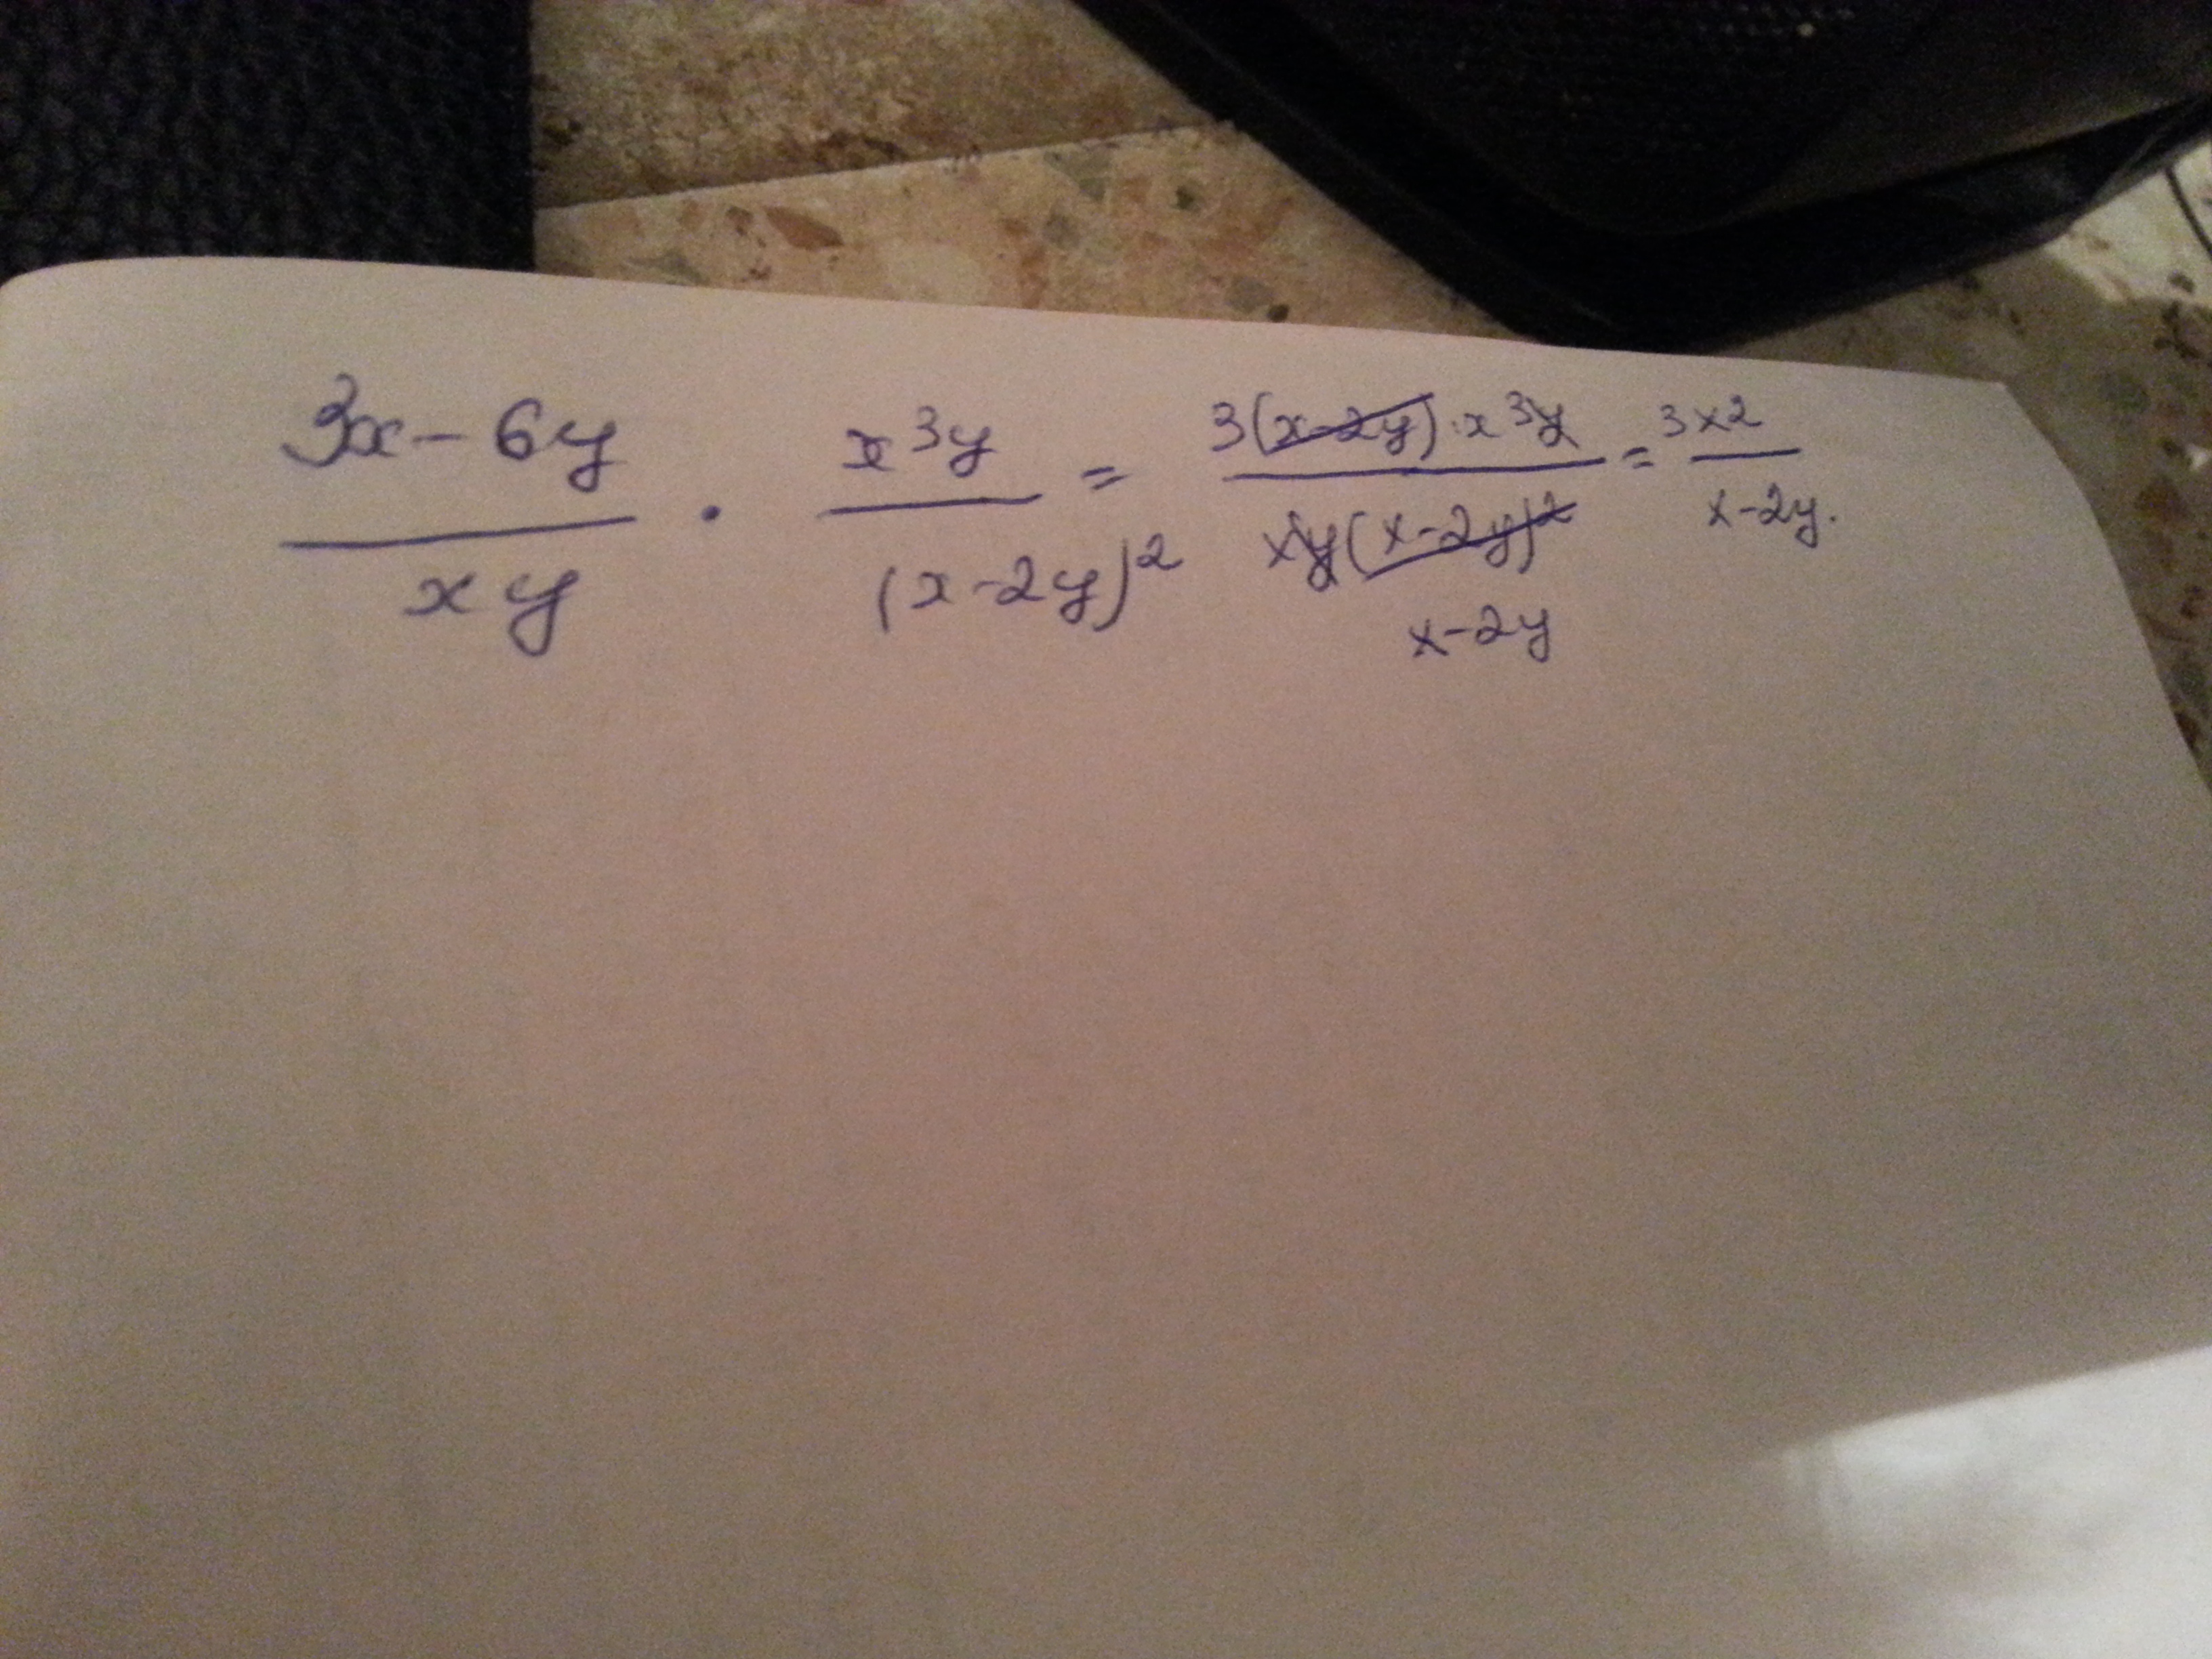 (3x-6y)/(xy) · (x³y)/((x-2y)²) = (3(x-2y)·x³y)/(xy(x-2y)²) = (3x2)/(x-2y).
x-2y